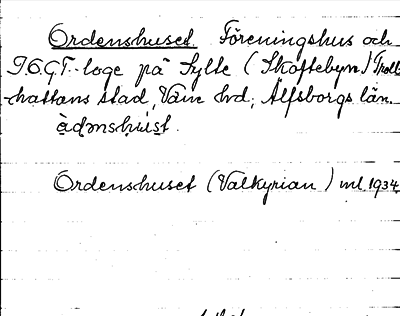 Ordenshuset Föreningshus och
I.O.G.T.-loge på Sylte (Skoftebyn) Troll-
hättans stad, Väne hd, Älfsborgs län.
Ordenshuset (Valkyrian) ml 1934